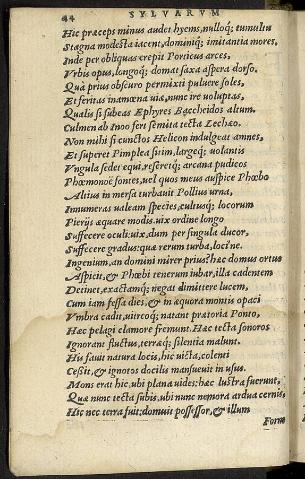 44 SYLVARVM
Hic præceps minus audet hyems, nulloq; tumultu
Stagna modesta iacent, dominiq; imitantia mores,
Inde per obliquas erepit Porticus arces,
Vrbis opus, longoq; domat saxa aspera dorso.
Quà prius obscuro permixti puluere soles,
Et feritas inamœna uiæ, nunc ire uoluptas,
Qualis si subeas Ephyres Baccheidos altum.
Culmen ab Inoo fert semita tecta Lechæo.
Non mihi si cunctos Helicon indulgeat amnes,
Et superet Pimplea sitim, largeq; uolantis
Vngula sedet equi, reseretq; arcana pudicos
Phœmonoë fontes, uel quos meus auspice Phœbo
Altius in mersa turbauit Pollius urna,
Innumeras ualeam species, cultusq; locorum
Pierijs æquare modis. uix ordine longo
Suffecere oculi: uix, dum per singula ducor,
Suffecere gradus: quæ rerum turba, loci ne.
Ingenium, an domini mirer prius? hæc domus ortus
Aspicit, & Phœbi tenerum iubar, illa cadentem
Detinet, exactamq; negat dimittere lucem,
Cum iam fessa dies, & in æquora montis opaci
Vmbra cadit, uitreoq; natant prætoria Ponto,
Hæc pelagi clamore fremunt. Hæc tecta sonoros
Ignorant fluctus, terræq; silentia malunt.
His fauit natura locis, hic uicta, colenti
Cessit, & ignotos docilis mansueuit in usus.
Mons erat hic, ubi plana uides: hæc lustra fuerunt,
Quæ nunc tecta subis, ubi nunc nemora ardua cernis,
Hic nec terra fuit: domuit possessor, & illum
Forma